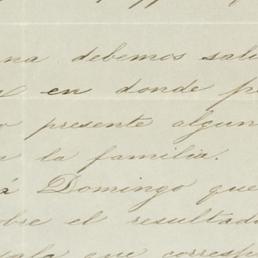 na debemos sal
en donde p
presente algun
la familia.
á Domingo que
bre el resultad
que corresp